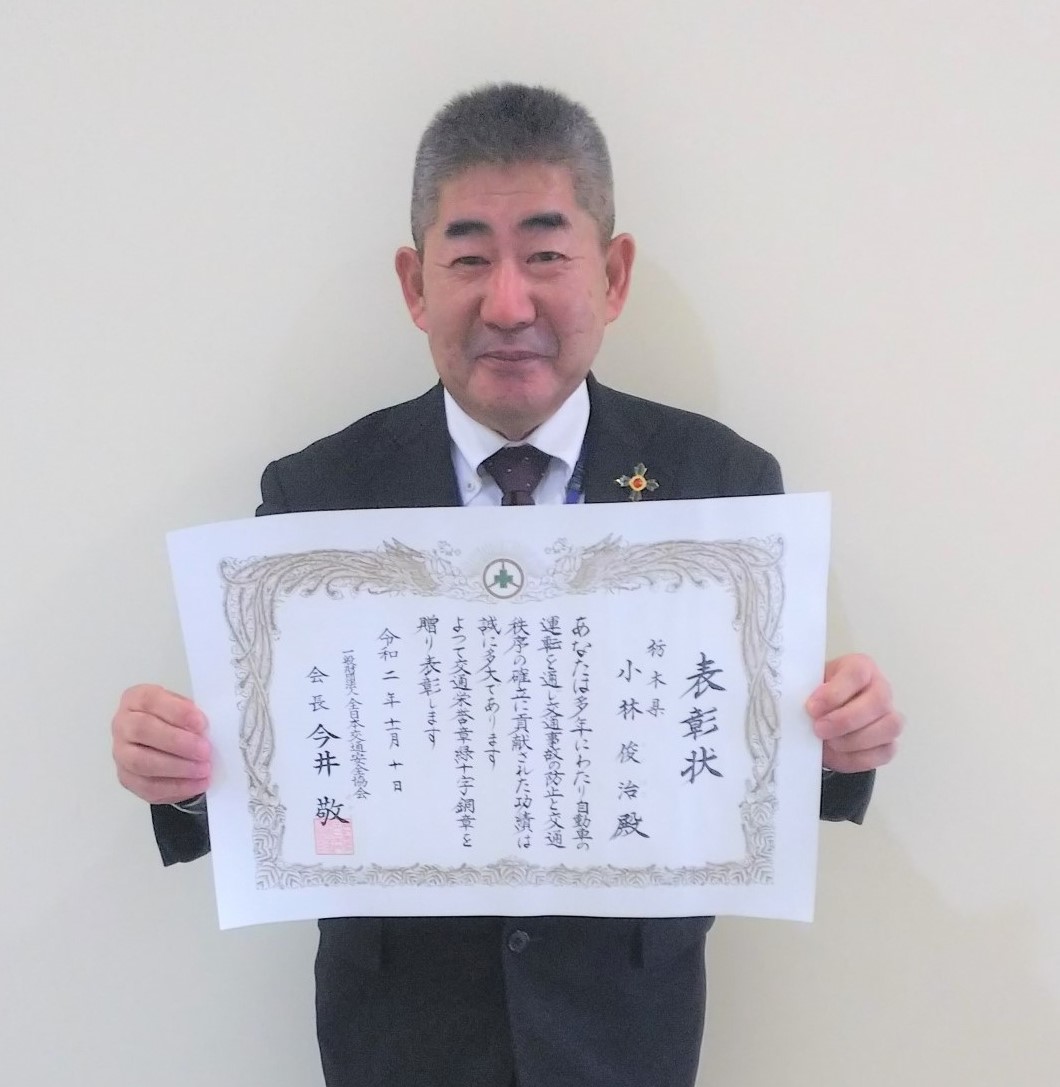 表彰状
栃木県
小林俊治殿
あなたは多年にわたり自動車の
運転を通し交通事故の防止と交通
秩序の確立に貢献された功績は
誠に多大であります
よって交通栄誉章緑十字銅章を
贈り表彰します
令和二年十二月十日
一般財団法人全日本交通安全協会
会長今井敬